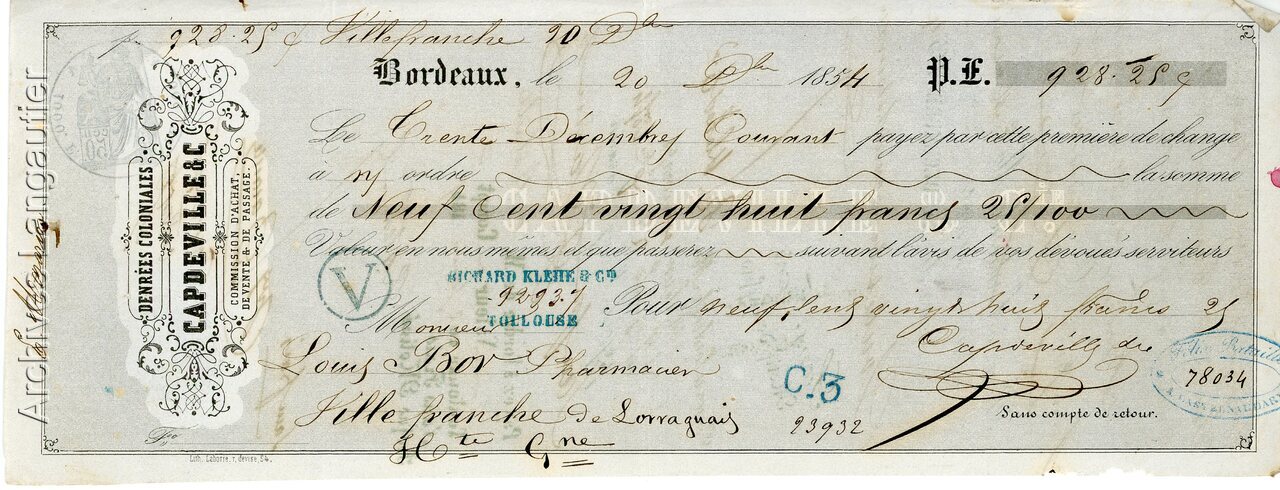 928.25 c Villefranche 20 Dbre
Bordeaux, le 20 Dbre 1854 P. F. 928-25 c
Le Trente Décembre Courant payez par cette première de change
à n/ ordre la somme
de Neuf Cent vingt huit francs 25/100
Valeur en nous mêmes et que passerez suivant l'avis de vos dévoués serviteurs
DENRÉES COLONIALES
CAPDEVILLE & C
COMMISSION D'ACHAT,
DE VENTE & DE PASSAGE.
V
RICHARD KLEHE & Cie
9293.7
TOULOUSE
Pour neuf cent vingt huit francs 25
Monsieur
Capdeville &c
Louis Bor Pharmacien
C.3
78034
Ville franche de Lorraguais
23932
Sans compte de retour.
Hte Gne
Fo
Lith. Laborre, r. devise, 54.
Archiv Langauffer